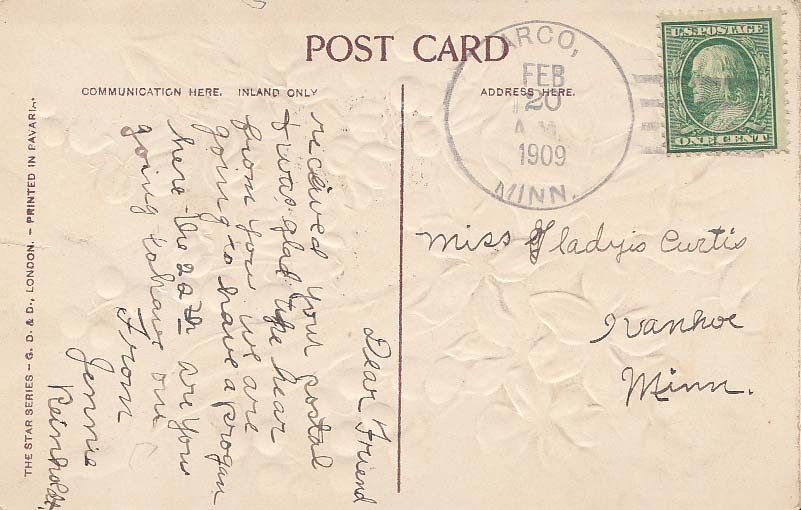 POST CARD
COMMUNICATION HERE. INLAND ONLY
ADDRESS HERE.
ARCO,
FEB
20
A.M.
1909
MINN.
U.S. POSTAGE
ONE CENT
Miss Gladyis Curtis
Ivanhoe
Minn.
Dear Friend
received your postal
& was glad to hear
from you we are
going to have a progum
here the 22nd are you
going to have one
From
Jennie
Reinholdt
THE STAR SERIES – G. D. & D., LONDON. – PRINTED IN BAVARIA.